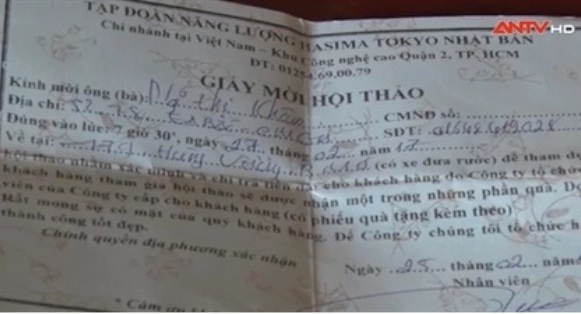 ANTV HD
TẬP ĐOÀN NĂNG LƯỢNG HASIMA TOKYO NHẬT BẢN
Chi nhánh tại Việt Nam - Khu Công nghệ cao Quận 2, TP. HCM
ĐT: 01254.69.00.79
GIẤY MỜI HỘI THẢO
Kính mời ông (bà): Ngô Thị
Địa chỉ: CMND số:
SĐT:
Đúng vào lúc: 7 giờ 30', ngày 27 tháng 02 năm 17
Về tại: Hùng Vương (có xe đưa rước) để tham dự
hội thảo nhằm xác minh và chi trả tiền cho khách hàng do Công ty tổ chức
khách hàng tham gia hội thảo sẽ được nhận một trong những phần quà.
viên của Công ty cấp cho khách hàng (có phiếu quà tặng kèm theo)
Rất mong sự có mặt của quý khách hàng. Để Công ty chúng tôi tổ chức
thành công tốt đẹp.
Chính quyền địa phương xác nhận
Ngày 25 tháng 02 năm
Nhân viên
* Cảm ơn